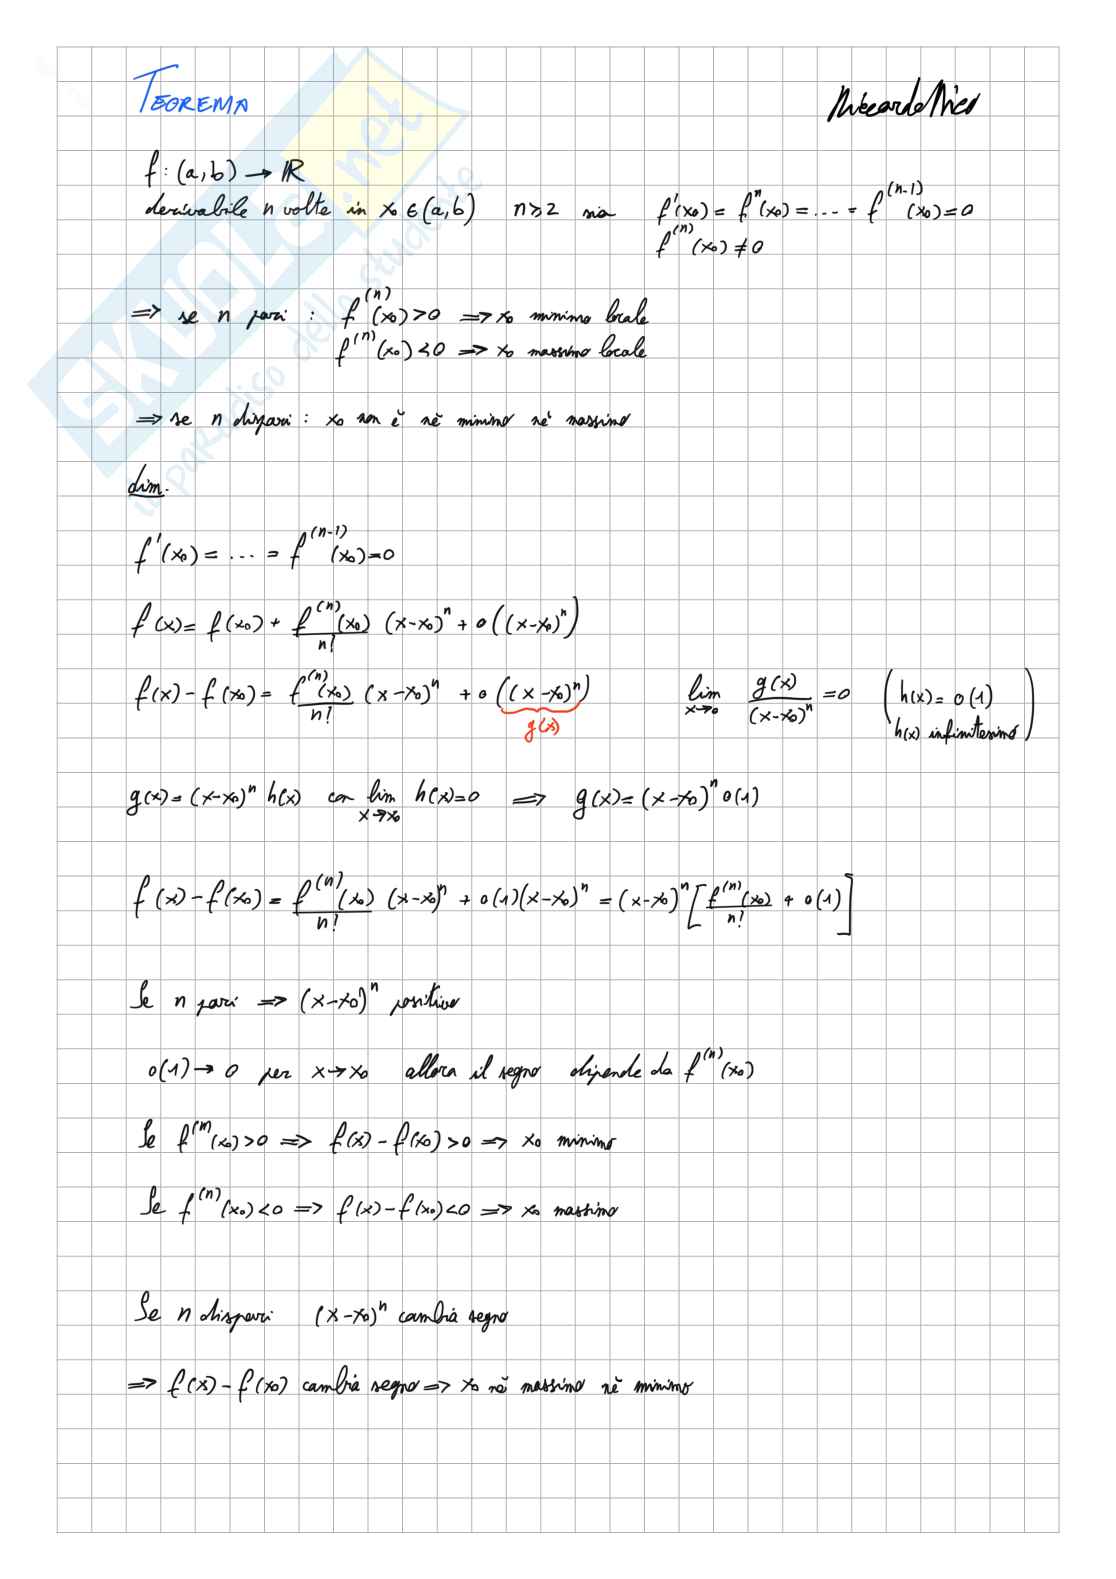 TEOREMA
Riccardo Nico
f : (a,b) → ℝ
derivabile n volte in x₀ ∈ (a,b) n ≥ 2 sia f'(x₀) = f''(x₀) = .... = f⁽ⁿ⁻¹⁾(x₀) = 0
f⁽ⁿ⁾(x₀) ≠ 0
⇒ se n pari : f⁽ⁿ⁾(x₀) > 0 ⇒ x₀ minimo locale
f⁽ⁿ⁾(x₀) < 0 ⇒ x₀ massimo locale
⇒ se n dispari : x₀ non è nè minimo nè massimo
dim.
f'(x₀) = ... = f⁽ⁿ⁻¹⁾(x₀) = 0
f(x) = f(x₀) + f⁽ⁿ⁾(x₀)/n! (x-x₀)ⁿ + o((x-x₀)ⁿ)
f(x) - f(x₀) = f⁽ⁿ⁾(x₀)/n! (x-x₀)ⁿ + o((x-x₀)ⁿ) lim x→0 g(x)/(x-x₀)ⁿ = 0 (h(x) = o(1)
g(x) h(x) infinitesimo)
g(x) = (x-x₀)ⁿ h(x) con lim x→x₀ h(x) = 0 ⇒ g(x) = (x-x₀)ⁿ o(1)
f(x) - f(x₀) = f⁽ⁿ⁾(x₀)/n! (x-x₀)ⁿ + o(1)(x-x₀)ⁿ = (x-x₀)ⁿ [f⁽ⁿ⁾(x₀)/n! + o(1)]
Se n pari ⇒ (x-x₀)ⁿ positivo
o(1) → 0 per x → x₀ allora il segno dipende da f⁽ⁿ⁾(x₀)
Se f⁽ⁿ⁾(x₀) > 0 ⇒ f(x) - f(x₀) > 0 ⇒ x₀ minimo
Se f⁽ⁿ⁾(x₀) < 0 ⇒ f(x) - f(x₀) < 0 ⇒ x₀ massimo
Se n dispari (x-x₀)ⁿ cambia segno
⇒ f(x) - f(x₀) cambia segno ⇒ x₀ nè massimo nè minimo
SKUOLA.net
il paradiso dello studente